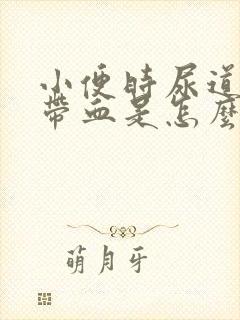 小便時尿道
帶血是怎麼
萌月牙